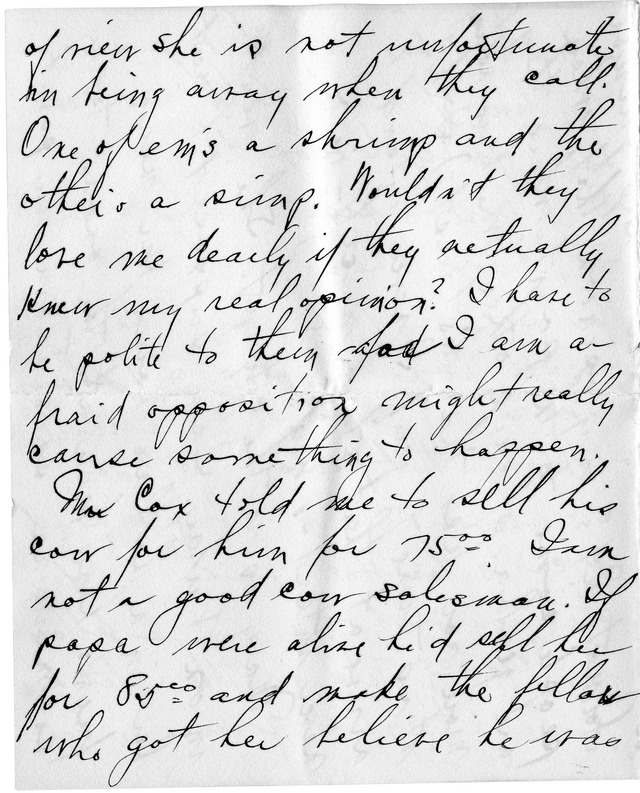 of view she is not unfortunate
in being away when they call.
One of em's a shrimp and the
other's a simp. Wouldn't they
love me dearly if they actually
knew my real opinion? I have to
be polite to them for I am a-
fraid opposition might really
cause something to happen.
Mr Cox told me to sell his
cow for him for 75⁰⁰ I am
not a good cow salesman. If
papa were alive he'd sell her
for 85⁰⁰ and make the fellow
who got her believe he was